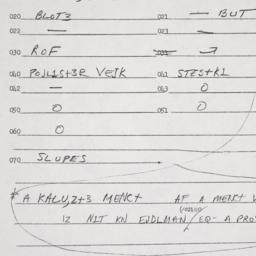 020 BLOT3 021 — BUT
022 — 023 —
030 ROF
040 POJ1S+3R VEJK 041 STES+KL
042 — 043 O
050 O 051 O
060 O
070 SLUPES
* A KALU,2+3 MENC+ AF A MENC+ V
12 NIT KN EJDLMAN/ EQ- A PROS